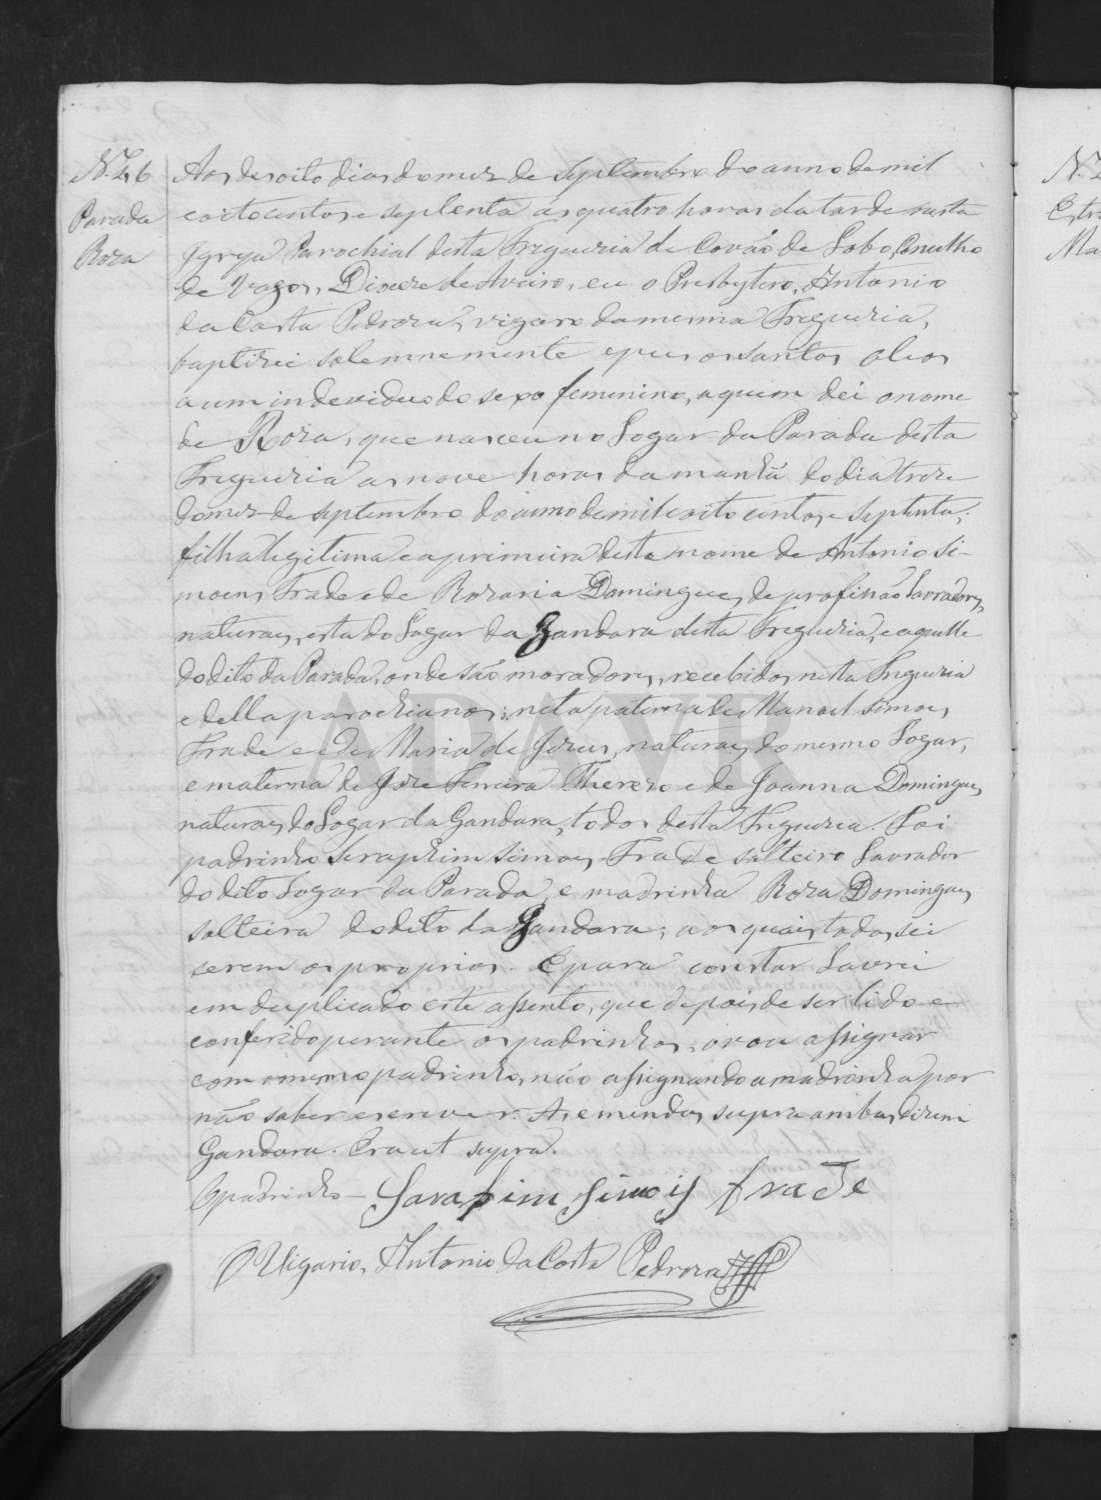 N. 46
Parada
Roza
Aos desoito dias do mez de Septembro do anno de mil
e oitocentos e septenta as quatro horas da tarde nesta
Igreja Parochial desta Freguezia de Covão de Lobo, Conselho
de Vagos, Diocese de Aveiro, eu o Presbytero, Antonio
da Costa Pedroza, vigario da mesma Freguezia,
baptizei solemnemente e puz os santos oleos
a um individuo do sexo femenino, a quem dei o nome
de Roza, que nasceu no Logar da Parada desta
Freguezia as nove horas da manhã do dia treze
do mez de septembro do anno de mil e oito centos e septenta,
filha legitima e a primeira deste nome de Antonio Si-
moens Frade e de Rozaria Domingues, de profissão Lavradores,
naturaes, esta do Logar da Gandara desta Freguezia, e aquelle
do dito da Parada, onde são moradores, recebidos nesta Freguezia
e della parochianos; neta paterna de Manoel Simoes
Frade e de Maria de Jezus, naturaes do mesmo Logar,
e materna de Joze Ferreira Therezo e de Joanna Domingues,
naturaes do Logar da Gandara, todos desta Freguezia. Foi
padrinho Seraphim Simoes Frade solteiro Lavrador
do dito Logar da Parada, e madrinha Roza Domingues,
solteira do dito da Gandara; aos quais todos sei
serem os proprios. E para constar Lavrei
em duplicado este assento, que depois de ser lido e
conferido perante os padrinhos, o vou assignar
com o mesmo padrinho, não assignando a madrinha por
não saber escrever. As emendas supra ambas dizem
Gandara. Era ut supra.
O padrinho - Sarafim Simois frade
O Vigario, Antonio da Costa Pedroza
ADAVR
N. 
Estr
Ma